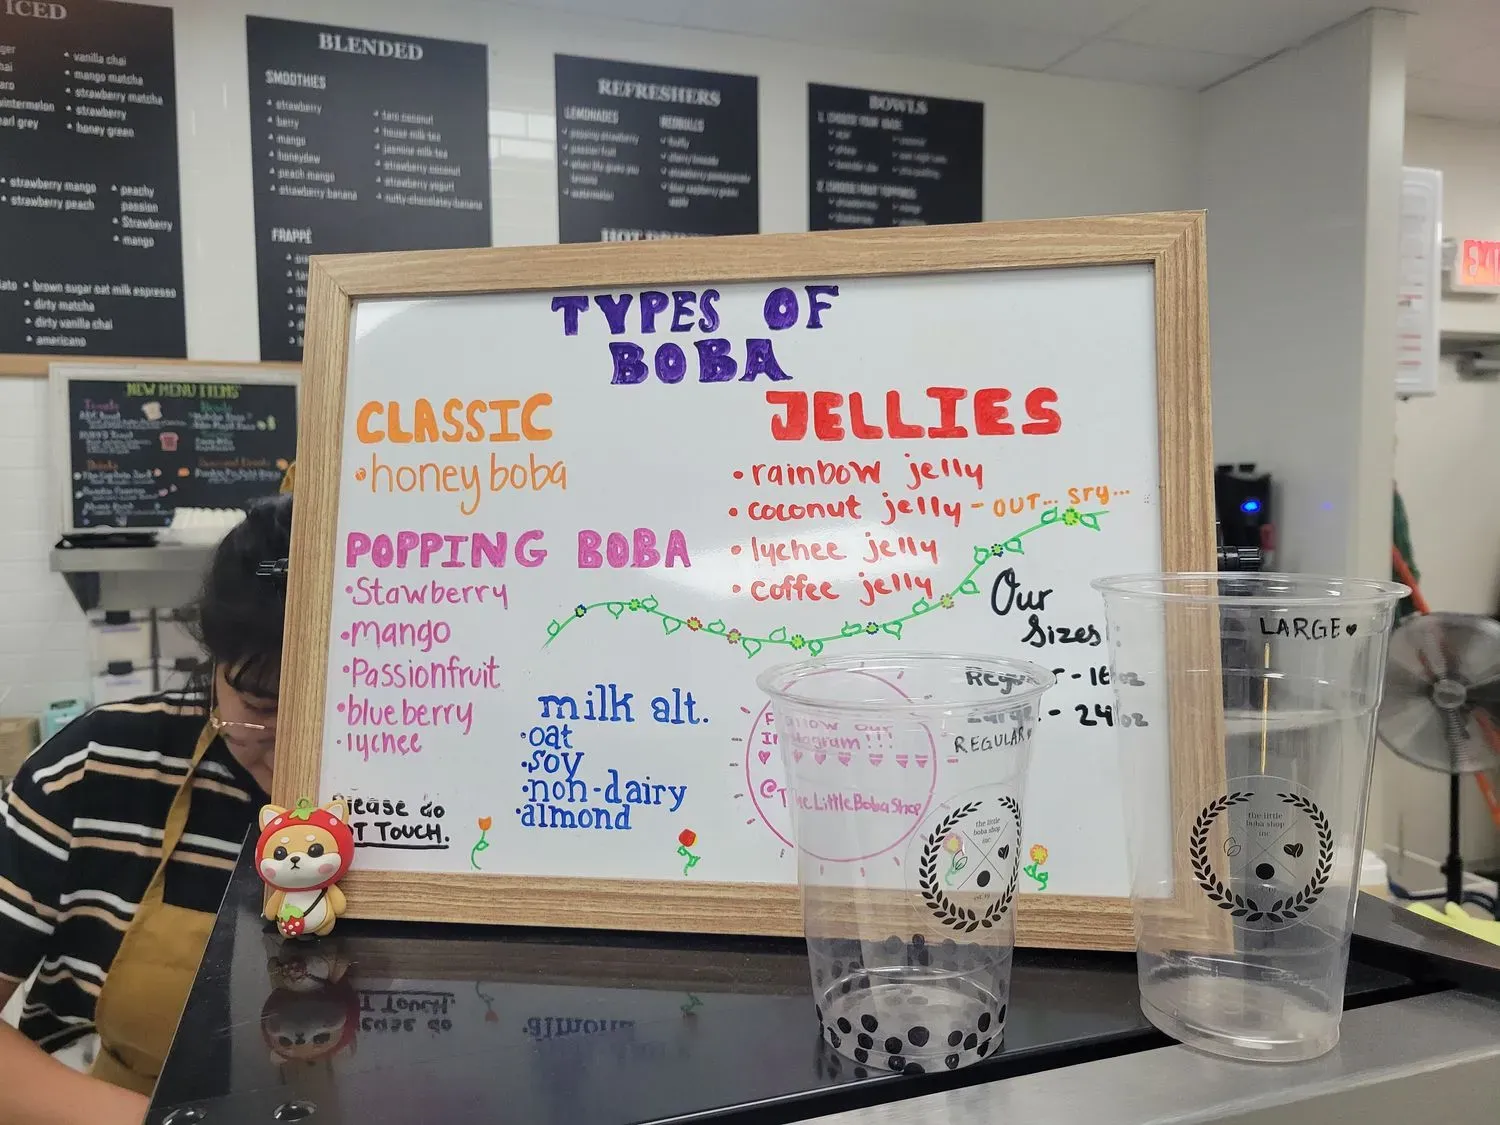 ICED
vanilla chai
mango matcha
strawberry matcha
strawberry
honey green
wintermelon
earl grey
strawberry mango
strawberry peach
peachy
passion
Strawberry
mango
brown sugar oat milk espresso
dirty matcha
dirty vanilla chai
americano
BLENDED
SMOOTHIES
strawberry
berry
mango
honeydew
peach mango
strawberry banana
taro coconut
house milk tea
jasmine milk tea
strawberry coconut
strawberry yogurt
nutty-chocolatey-banana
FRAPPÉ
REFRESHERS
LEMONADES
REDBULLS
passion fruit
watermelon
BOWLS
EXIT
NEW MENU ITEMS
TYPES OF
BOBA
CLASSIC
•honey boba
POPPING BOBA
•Stawberry
•mango
•Passionfruit
•blueberry
•lychee
JELLIES
•rainbow jelly
•coconut jelly - OUT... sry...
•lychee jelly
•coffee jelly
Our
Sizes
- 16 oz
- 24 oz
milk alt.
•oat
•soy
•non-dairy
•almond
Follow our
Instagram!!!
@TheLittleBobaShop
Please do
NOT TOUCH.
REGULAR
the little
boba shop
inc.
LARGE♥
the little
boba shop
inc.